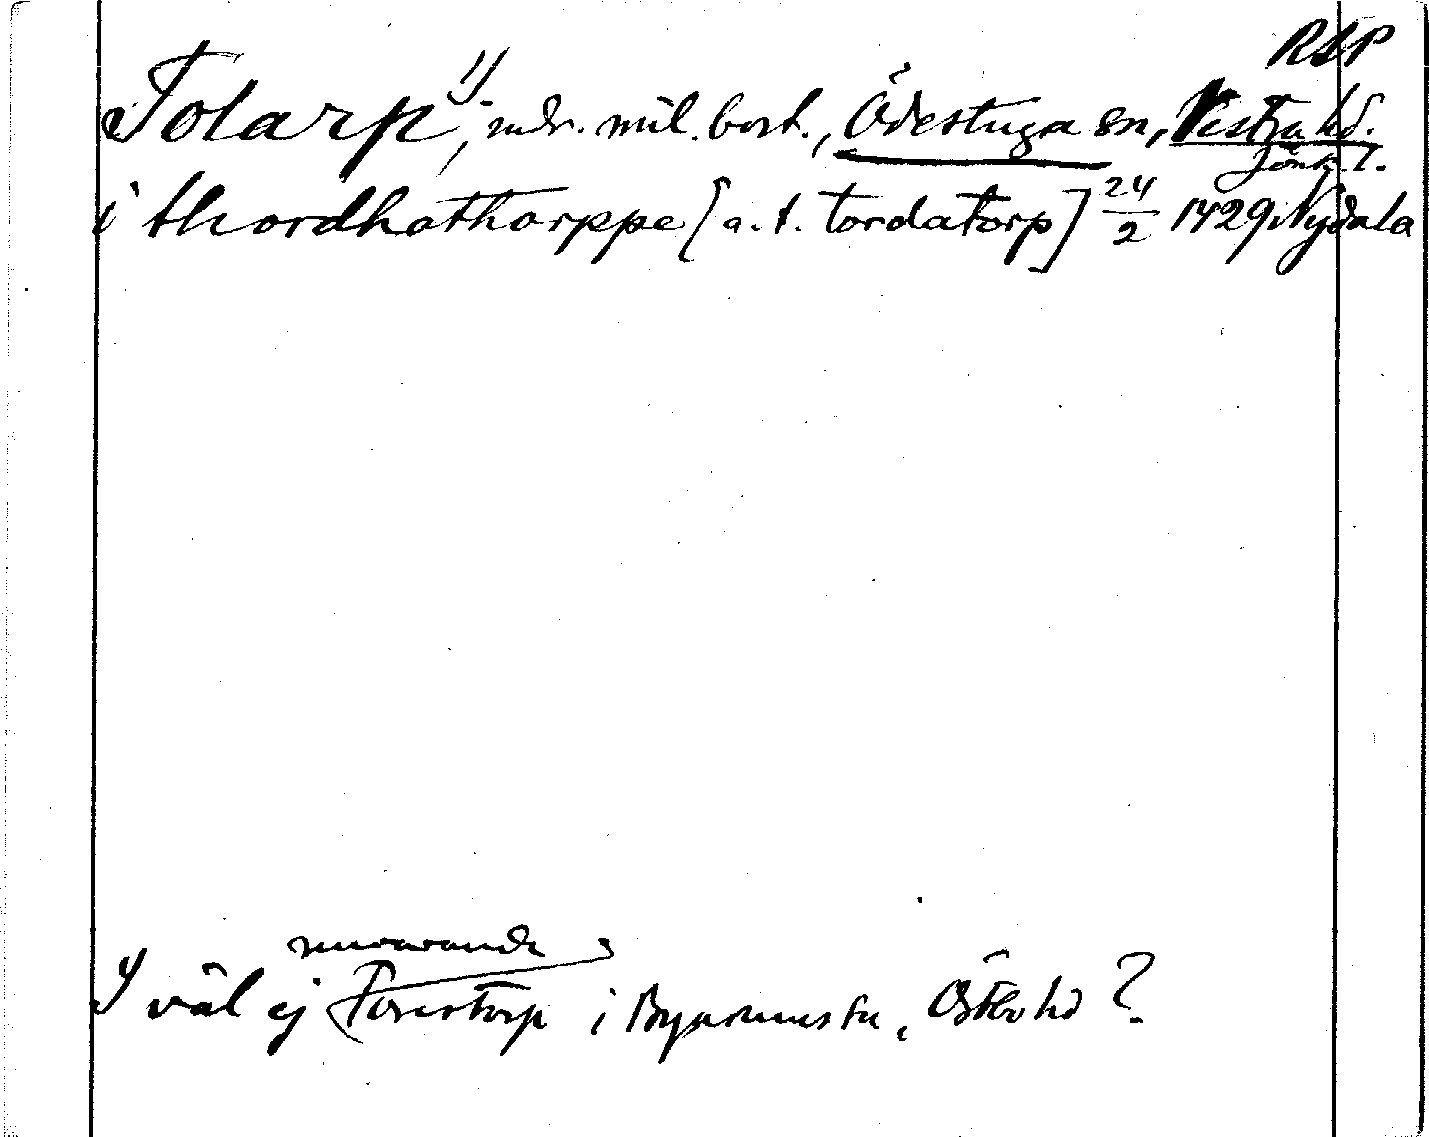 RSP
Tolarp 1), mdr. mil. bost., Ödestuga sn, Västra hd.
Jönk. l.
i thordhathorppe [a. t. tordatorp] 24/2 1429 Nydala
nuvarande
1) väl ej Torestorp i Byarums sn, Östbo hd?